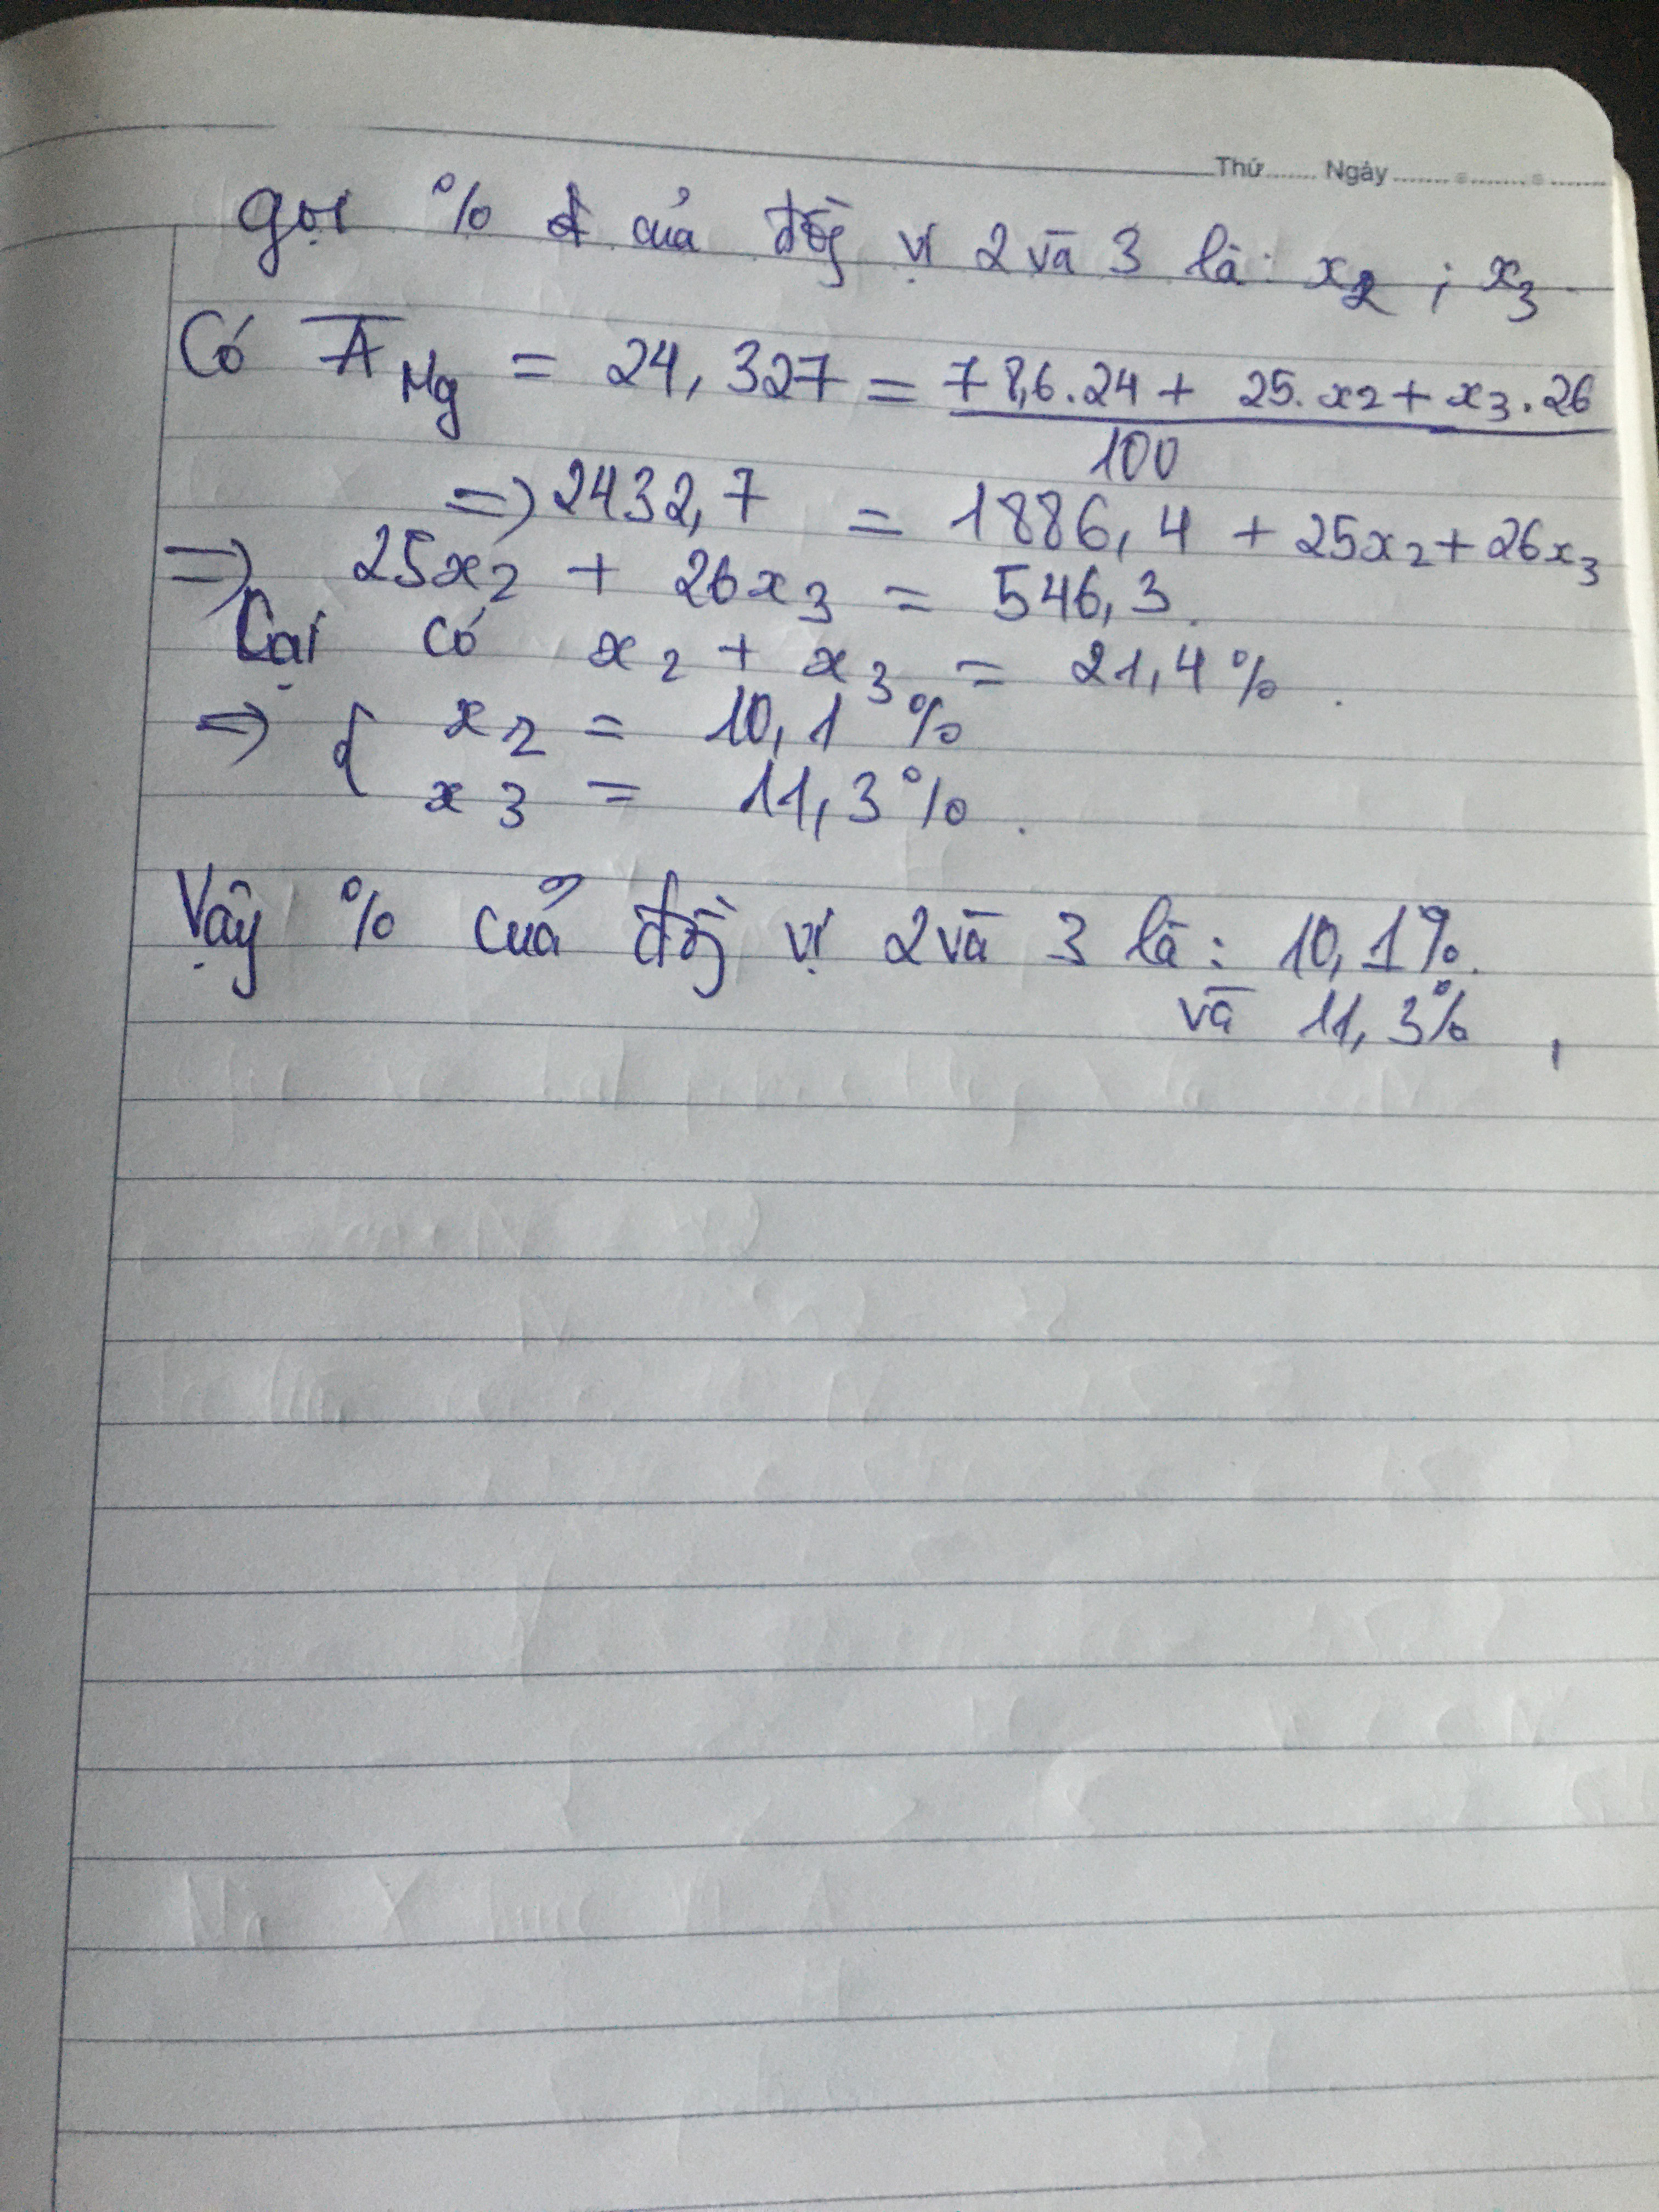 Thứ....... Ngày....................
Gọi % của đồng vị 2 và 3 là: x₂ ; x₃.
Có A̅ Mg = 24,327 = (78,6.24 + 25.x₂ + x₃.26) / 100
=> 2432,7 = 1886,4 + 25x₂ + 26x₃
=> 25x₂ + 26x₃ = 546,3.
Lại có x₂ + x₃ = 21,4% .
=> { x₂ = 10,1%
x₃ = 11,3% .
Vậy % của đồng vị 2 và 3 là: 10,1%.
và 11,3% ,